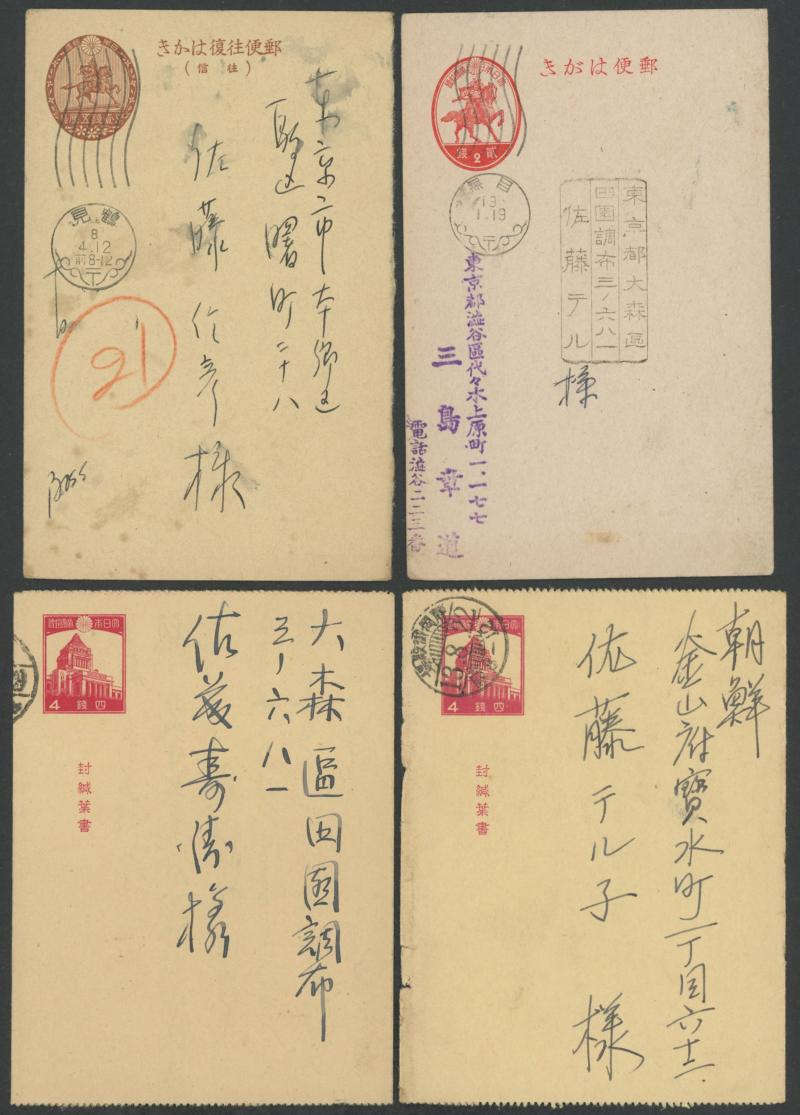 郵便往復はかき
(往信)
鶴見
8
4.12
前8-12
東京市本郷区
駒込曙町二十八
佐藤信彦様
21
郵便はがき
貳2錢
目黒
19
1.19
東京都大森區
田園調布三ノ六八一
佐藤テル
様
東京都澁谷區代々木上原町一、一七七
三島章道
電話澁谷二二三番
大日本帝國郵便
4錢四
封緘葉書
大森區田園調布
三ノ六八一
佐藤寿
様
大日本帝國郵便
4錢四
封緘葉書
13.8.12
朝鮮
釜山府寶水町一丁目六十二
佐藤テル子様